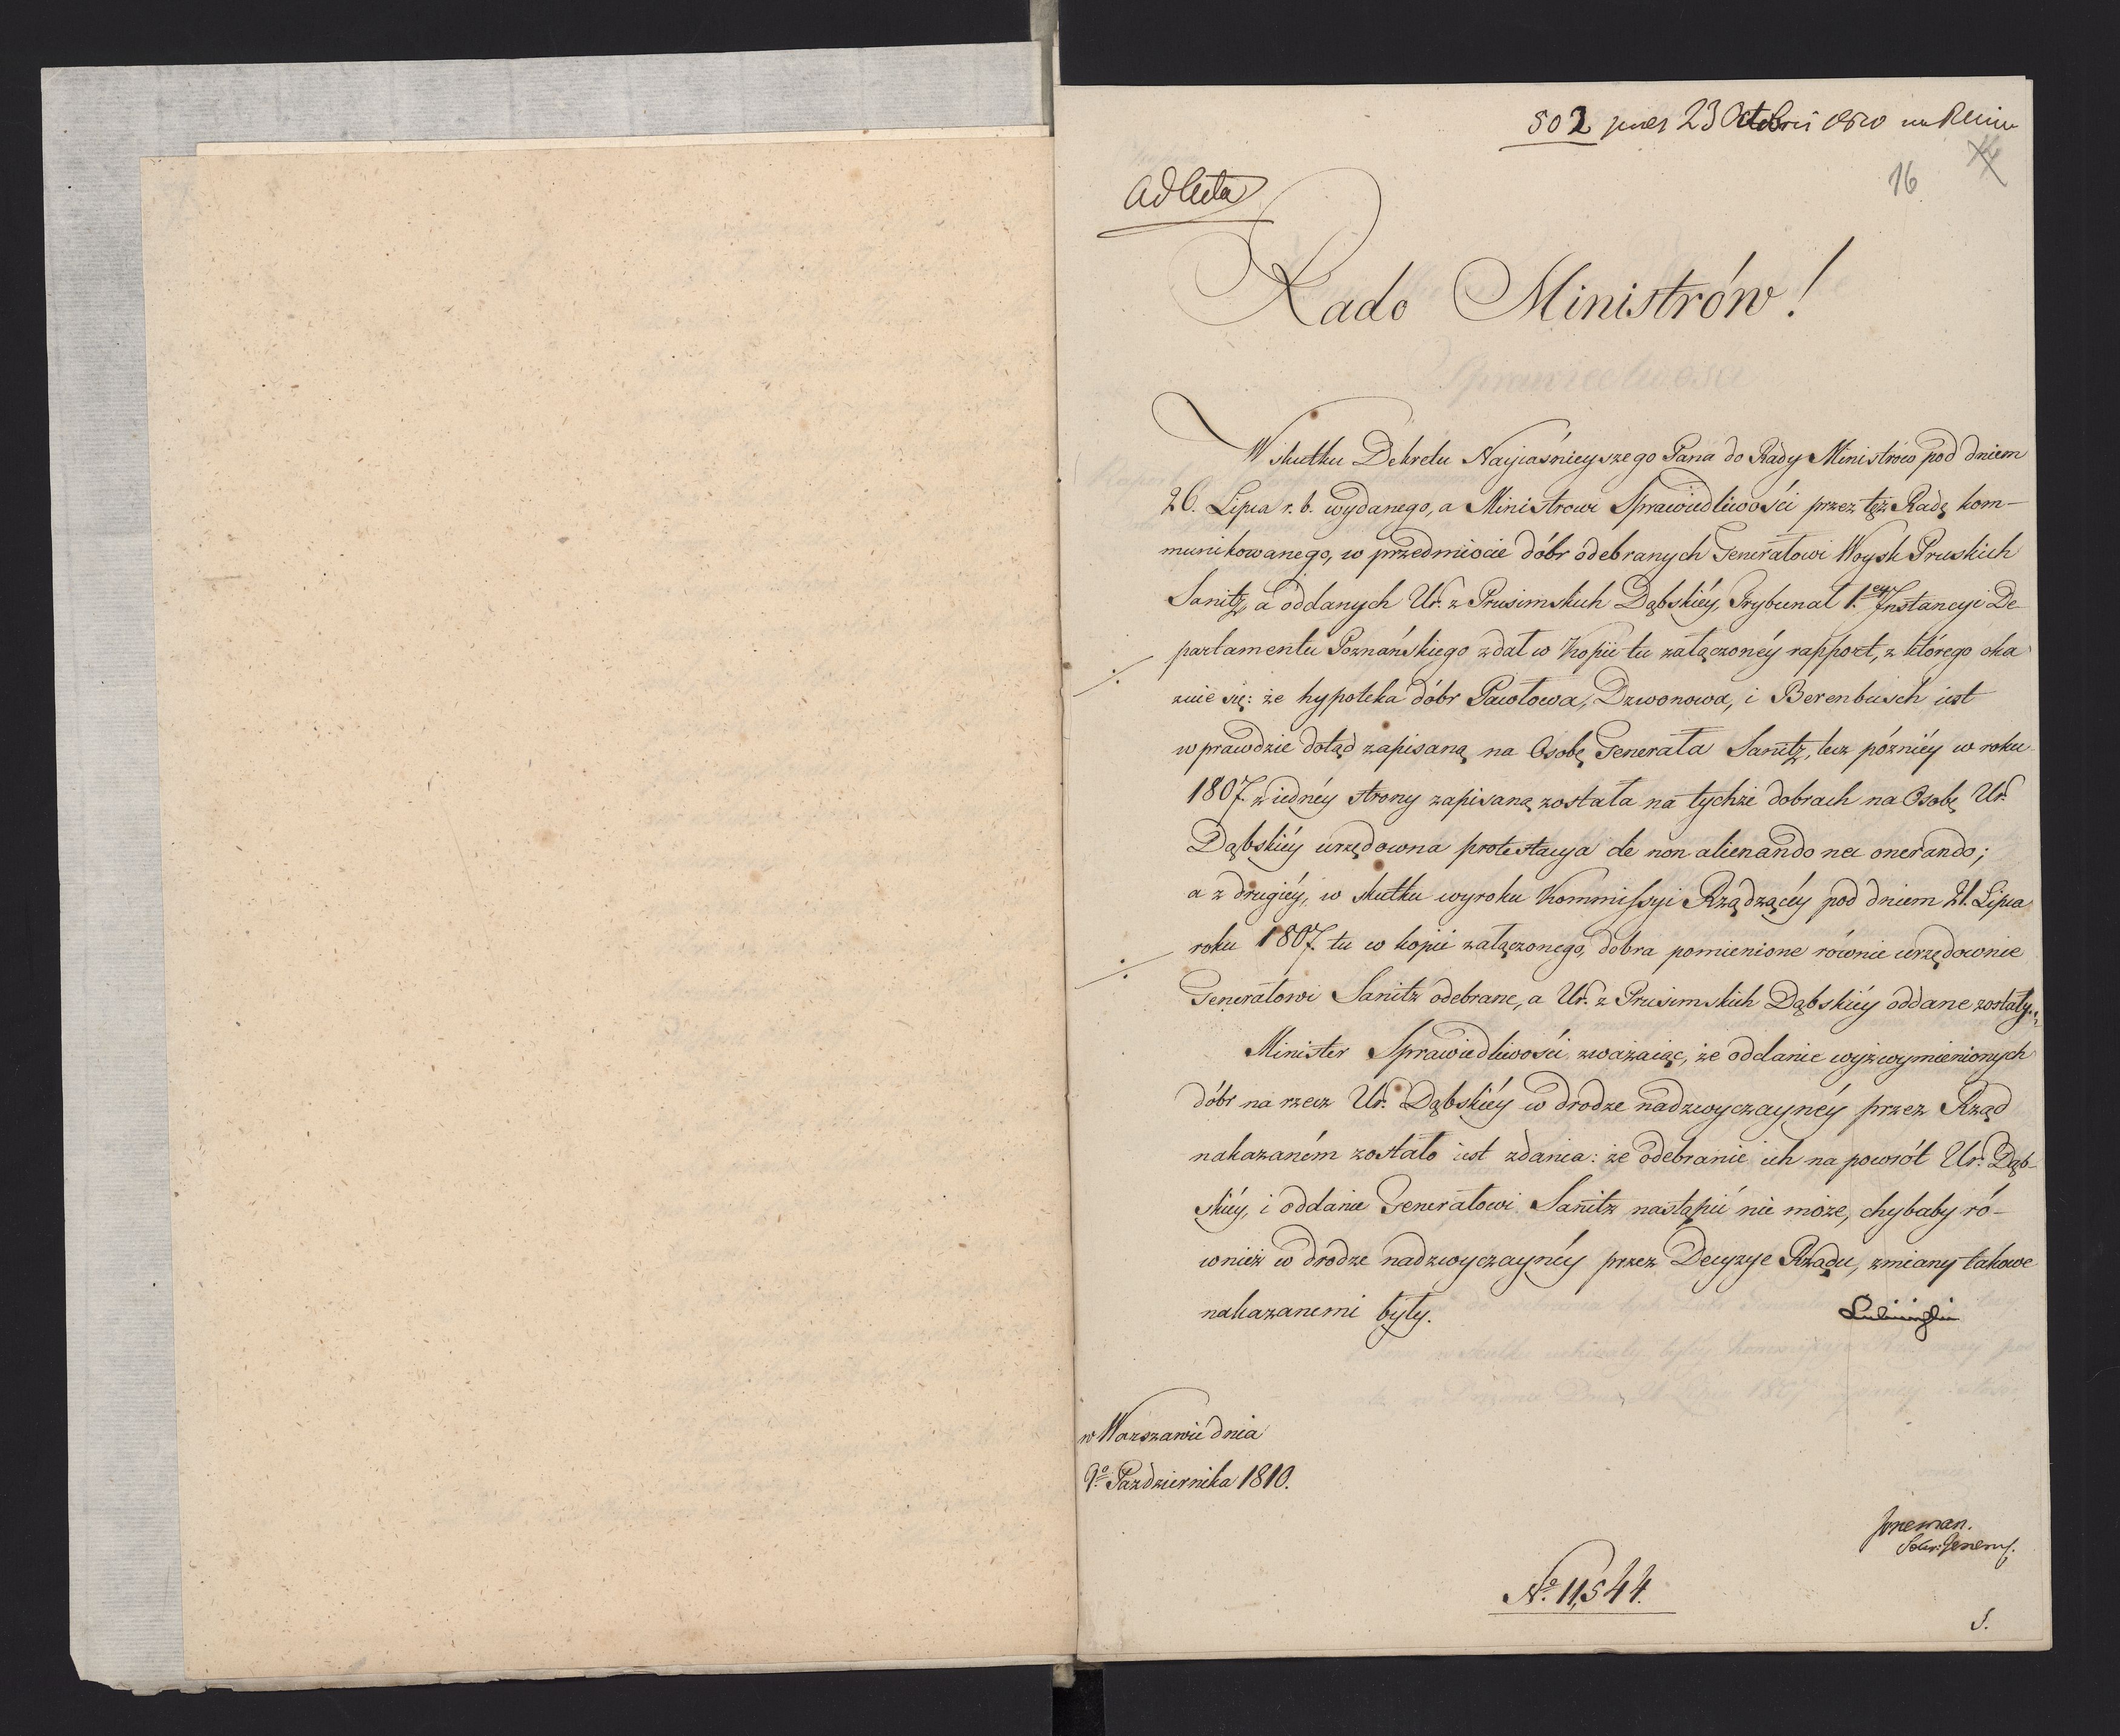 502 pres 23 Octobris 1810
16
Ad Acta
Rado Ministrów!
W skutku Dekretu Nayiaśnieyszego Pana do Rady Ministrów pod dniem
26. Lipca r. b. wydanego, a Ministrowi Sprawiedliwości przez tęż Radę kom-
munikowanego, w przedmiocie dóbr odebranych Generałowi Woysk Pruskich
Sanitz, a oddanych Ur. z Prusimskich Dąbskiéy, Trybunał 1.ey Instancyi De
partamentu Poznańskiego zdał w Kopii tu załączonéy rapport, z którego oka
zuie się: że hypoteka dóbr Pawłowa, Dzwonowa, i Berenbusch iest
wprawdzie dotąd zapisaną na Osobę Generała Sanitz, lecz późniéy w roku
1807. z iednéy strony zapisaną została na tychże dobrach na Osobę Ur.
Dąbskiéy urzędowna protestacya de non alienando nec onerando;
a z drugiéy, w skutku wyroku Kommissyi Rządzącéy pod dniem 21. Lipca
roku 1807. tu w kopii załączonego, dobra pomienione równie urzędownie
Generałowi Sanitz odebrane, a Ur. z Prusimskich Dąbskiéy oddane zostały.
Minister Sprawiedliwości zważaiąc, że oddanie wyżwymienionych
dóbr na rzecz Ur. Dąbskiéy w drodze nadzwyczaynéy przez Rząd
nakazaném zostało iest zdania: że odebranie ich na powrót Ur. Dąb-
skiéy, i oddanie Generałowi Sanitz nastąpić nie może, chybaby ró-
wnież w drodze nadzwyczaynéy przez Decyzye Rządu, zmiany takowe
nakazanemi były.
w Warszawie dnia
9º Października 1810.
Sekr: Generl.
Nº 11,544.
S.